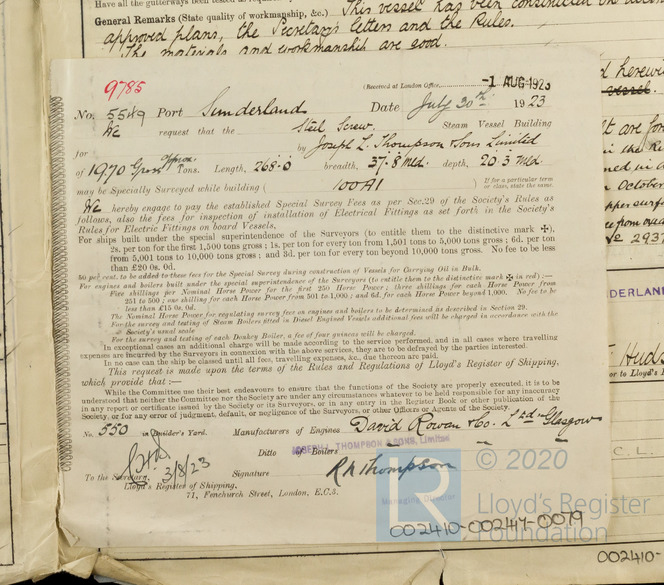 Have all the gutterways been tested as required
General Remarks (State quality of workmanship, &c.) This vessel has been constructed in
approved plans, the Secretary's letters and the Rules.
The materials and workmanship are good.
9785
(Received at London Office, -1 AUG 1923
No. 5549 Port Sunderland Date July 30th 1923
We request that the Steel Screw Steam Vessel Building
for by Joseph L. Thompson & Sons Limited
of 1970 Gross approx Tons. Length, 268.0 breadth, 37.8 Mld. depth, 20.3 Mld
may be Specially Surveyed while building ( 100A1 ) If for a particular term or class, state the same.
We hereby engage to pay the established Special Survey Fees as per Sec. 29 of the Society's Rules as
follows, also the fees for inspection of installation of Electrical Fittings as set forth in the Society's
Rules for Electric Fittings on board Vessels.
For ships built under the special superintendence of the Surveyors (to entitle them to the distinctive mark ✠),
2s. per ton for the first 1,500 tons gross; 1s. per ton for every ton from 1,501 to 5,000 tons gross; 6d. per ton
from 5,001 to 10,000 tons gross; and 3d. per ton for every ton beyond 10,000 tons gross. No fee to be less
than £20 0s. 0d.
50 per cent. to be added to these fees for the Special Survey during construction of Vessels for Carrying Oil in Bulk.
For engines and boilers built under the special superintendence of the Surveyors (to entitle them to the distinctive mark ✠ in red) :—
Five shillings per Nominal Horse Power for the first 250 Horse Power; three shillings for each Horse Power from
251 to 500; one shilling for each Horse Power from 501 to 1,000; and 6d. for each Horse Power beyond 1,000. No fee to be
less than £15 0s. 0d.
The Nominal Horse Power for regulating survey fees on engines and boilers to be determined as described in Section 29.
For the survey and testing of Steam Boilers fitted in Diesel Engined Vessels additional fees will be charged in accordance with the
Society's usual scale
For the survey and testing of each Donkey Boiler, a fee of four guineas will be charged.
In exceptional cases an additional charge will be made according to the service performed, and in all cases where travelling
expenses are incurred by the Surveyors in connection with the above services, they are to be defrayed by the parties interested.
In no case can the ship be classed until all fees, travelling expenses, &c., due thereon are paid.
This request is made upon the terms of the Rules and Regulations of Lloyd's Register of Shipping,
which provide that :—
While the Committee use their best endeavours to ensure that the functions of the Society are properly executed, it is to be
understood that neither the Committee nor the Society are under any circumstances whatever to be held responsible for any inaccuracy
in any report or certificate issued by the Society or its Surveyors, or in any entry in the Register Book or other publication of the
Society, or for any error of judgment, default, or negligence of the Surveyors, or other Officers or Agents of the Society.
No. 550 in Builder's Yard. Manufacturers of Engines David Rowan & Co. Ltd Glasgow
Ditto of Boilers
JOSEPH L. THOMPSON & SONS, Limited
3/8/23
To the Secretary, Signature R N Thompson
Managing Director
Lloyd's Register of Shipping,
71, Fenchurch Street, London, E.C.3.
© 2020
Lloyd's Register
Foundation
002410-002417-0079
002410-